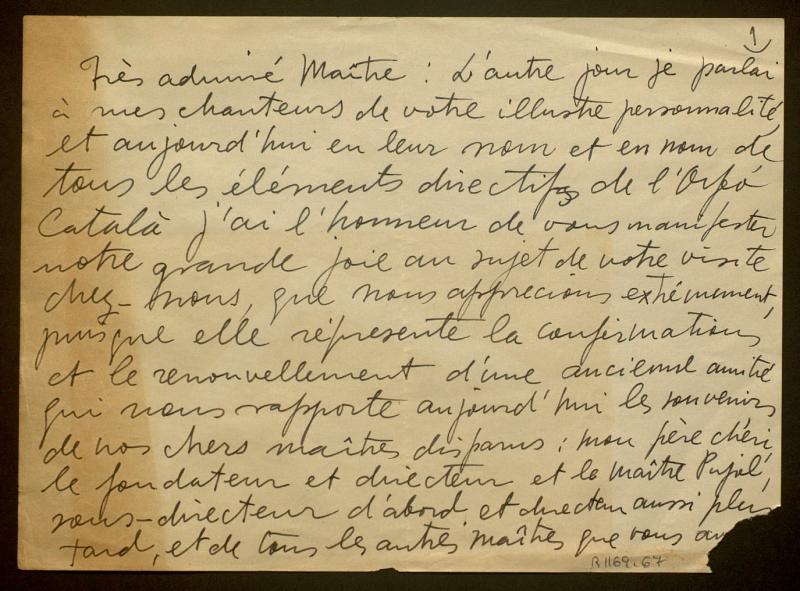 1
Très admiré Maître : L'autre jour je parlai
à mes chanteurs de votre illustre personnalité,
et aujourd'hui en leur nom et en nom de
tous les éléments directifs de l'Orfeó
Català j'ai l'honneur de vous manifester
notre grande joie au sujet de votre visite
chez-nous, que nous apprecions extrêmement,
puisque elle répresente la confirmation
et le renouvellement d'une ancienne amitié
qui nous rapporte aujourd'hui les souvenirs
de nos chers maîtres disparus : mon père chéri,
le fondateur et directeur et le maître Pujol,
sous-directeur d'abord et directeur aussi plus
tard, et de tous les autres maîtres que vous
R1169.67